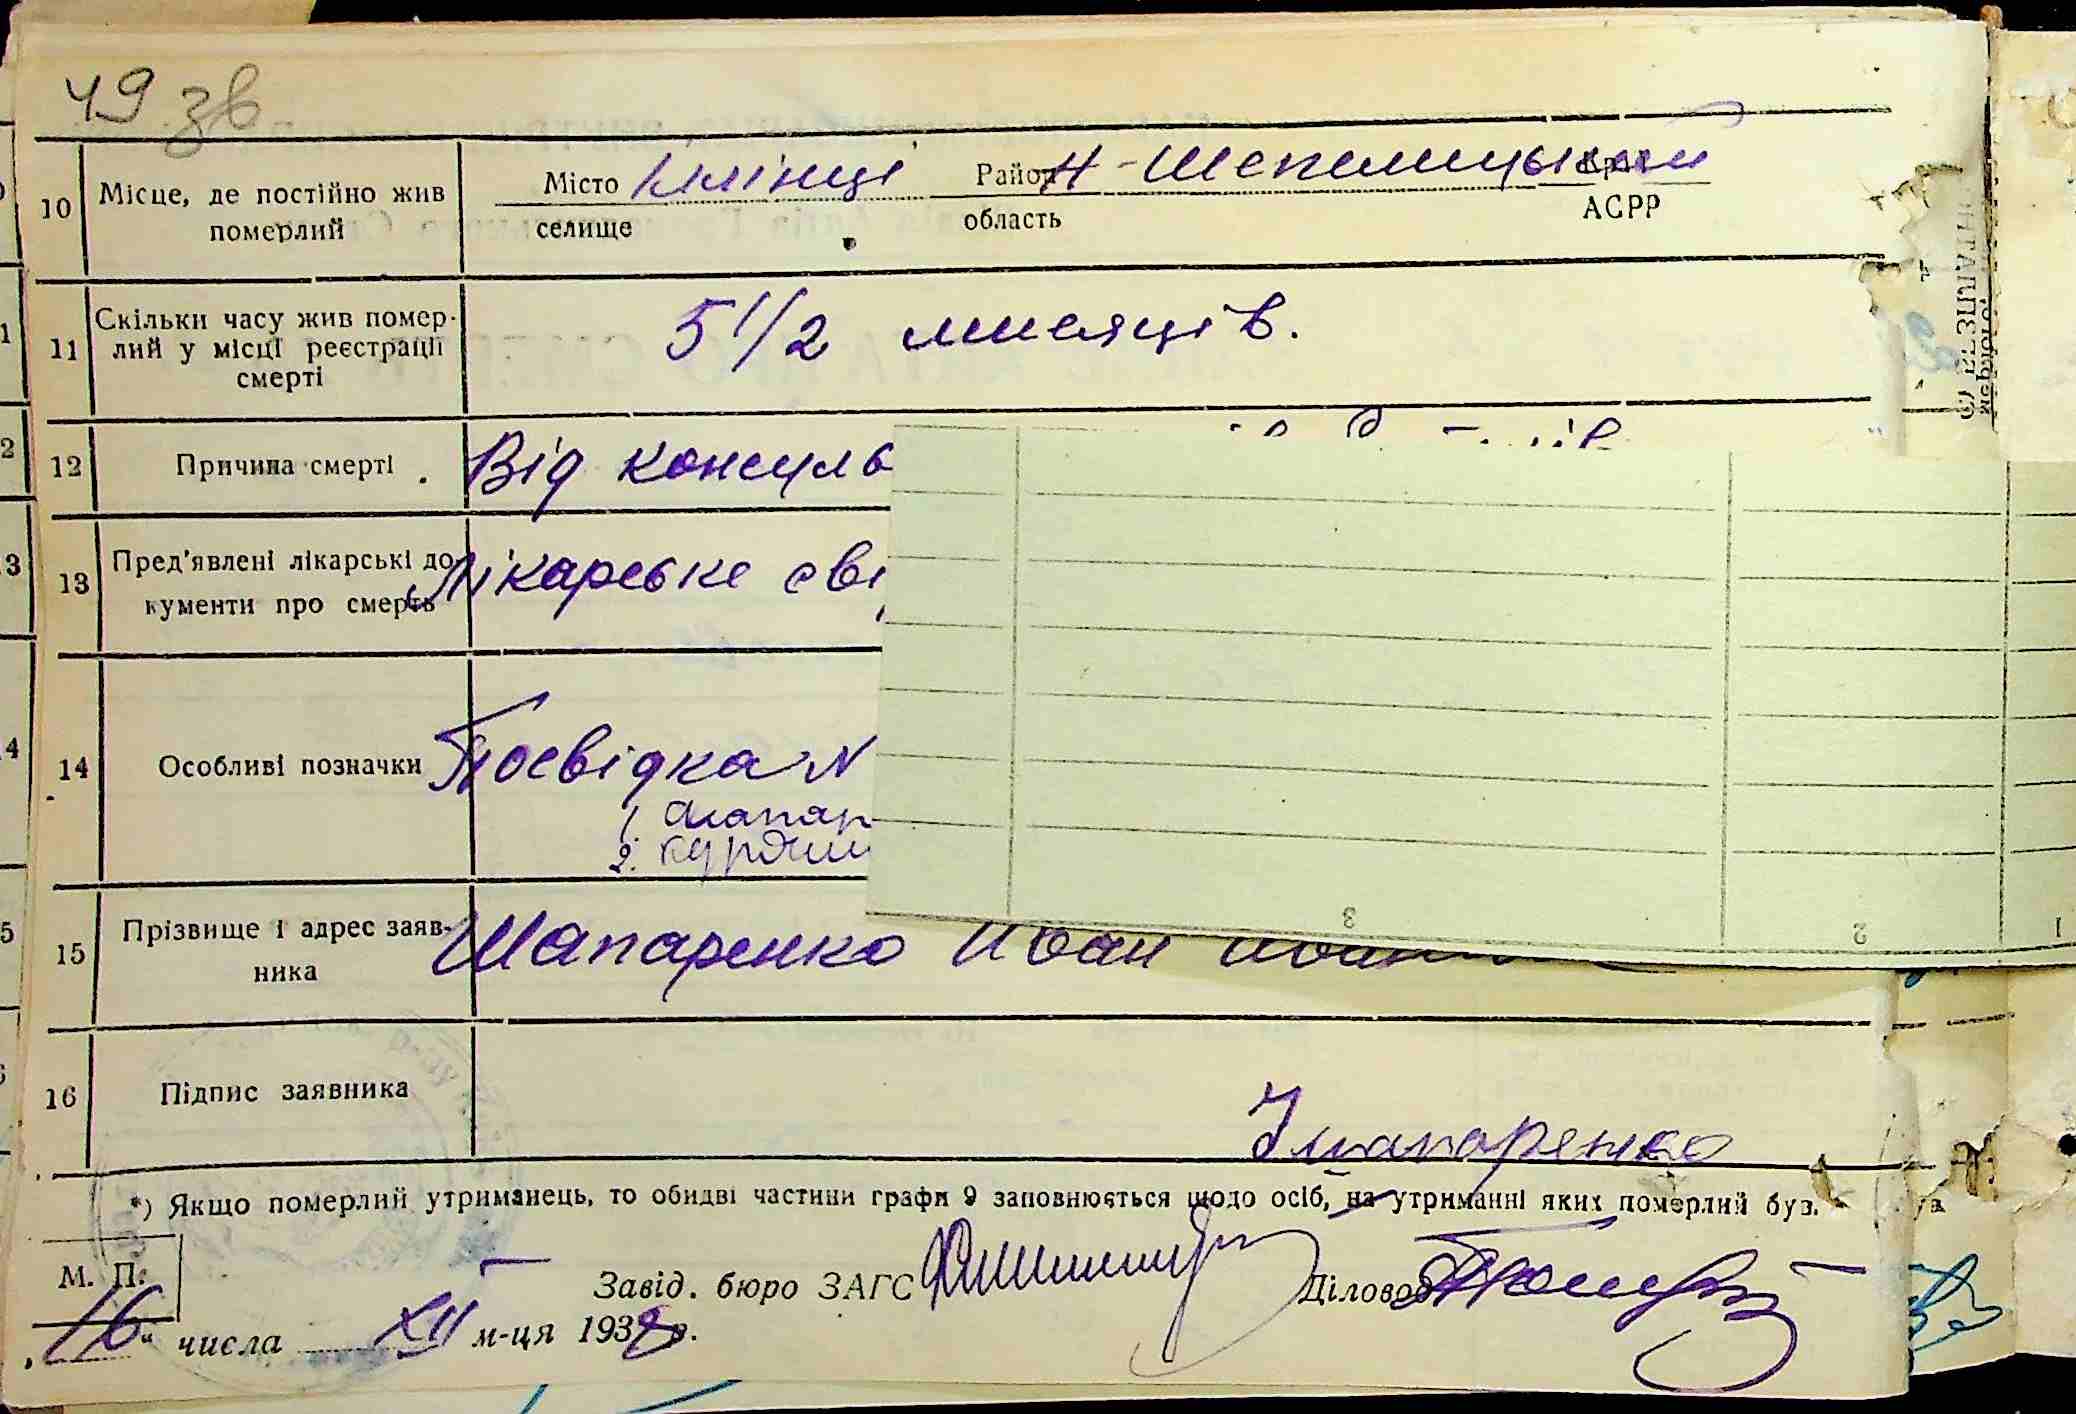 49 зв
10 Місце, де постійно жив померлий Місто Іллінці Район Н-Шепелицький
селище область АСРР
11 Скільки часу жив помер-
лий у місці реєстрації
смерті
5 1/2 мисяців.
12 Причина смерті Від консуль
13 Пред'явлені лікарські до
кументи про смерть
Лікарське сві
14 Особливі позначки Посвідка N
1.
2.
15 Прізвище і адрес заяв-
ника
Шапаренко Иван
3 2 1
16 Підпис заявника Шапаренко
*) Якщо померлий утриманець, то обидві частини графи 9 заповнюється щодо осіб, на утриманні яких померлий був.
М. П.
Завід. бюро ЗАГС Діловод
„16" числа XII м-ця 1938 р.